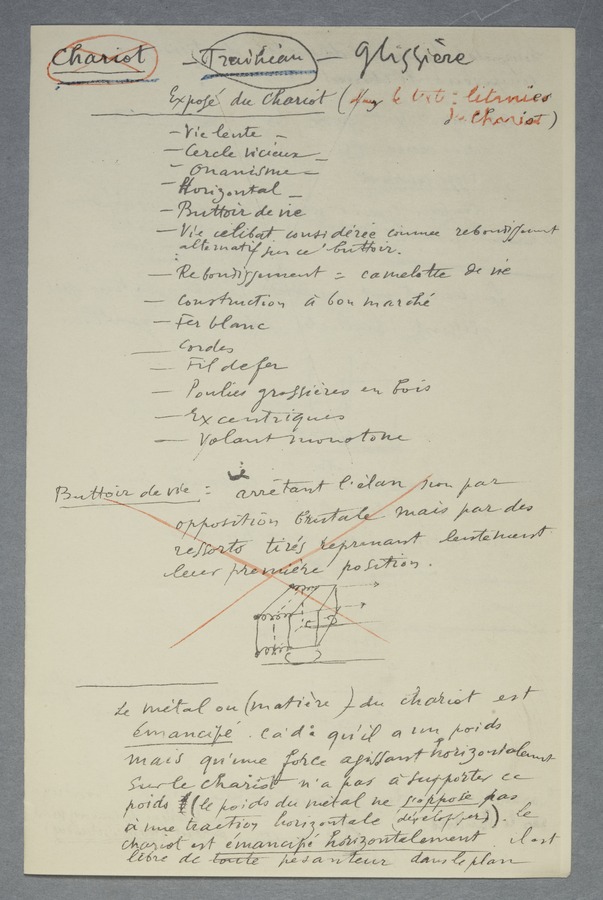 Chariot – Traîneau – glissière
Exposé du Chariot (dans le texte : litanies
du Chariot)
– Vie lente –
– Cercle vicieux –
– Onanisme –
– Horizontal –
– Buttoir de vie
– Vie célibat considérée comme rebondissement
alternatif sur ce buttoir.
– Rebondissement = camelotte de vie
– Construction à bon marché
– Fer blanc
– Cordes
– Fil de fer
– Poulies grossières en bois
– Excentriques
– Volant monotone
Buttoir de vie : arrêtant l'élan non par
opposition brutale mais par des
ressorts tirés reprenant lentement
leur première position.
Le métal ou (matière) du chariot est
émancipé. c.à.d. qu'il a un poids
mais qu'une force agissant horizontalement
sur le chariot n'a pas à supporter ce
poids (le poids du métal ne s'oppose pas
à une traction horizontale développer)). Le
chariot est émancipé horizontalement. il est
libre de toute pesanteur dans le plan